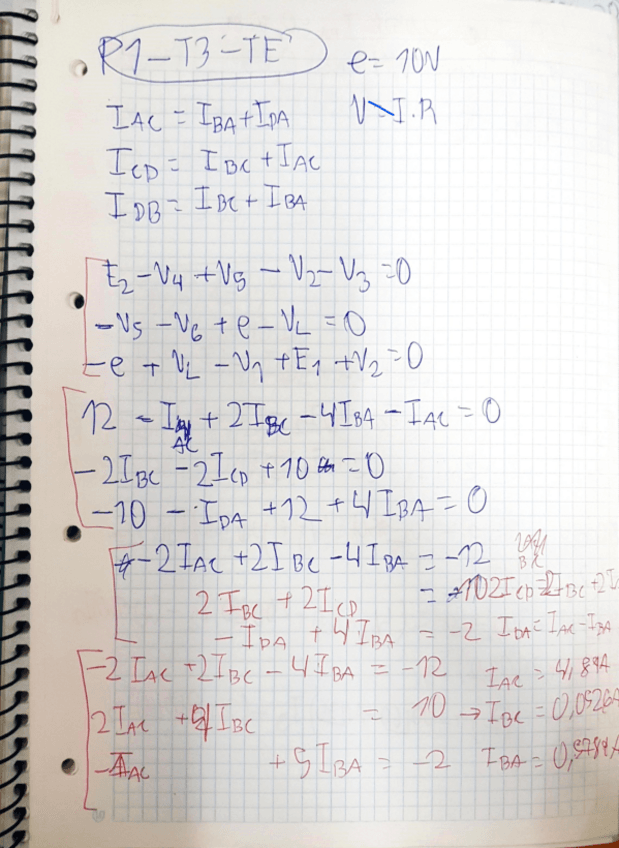 P1-T3-TE e = 10V
I_AC = I_BA + I_DA V = I.R
I_CD = I_BC + I_AC
I_DB = I_BC + I_BA
E_2 - V_4 + V_5 - V_2 - V_3 = 0
-V_5 - V_6 + e - V_L = 0
-e + V_L - V_1 + E_1 + V_2 = 0
12 - I_AC + 2I_BC - 4I_BA - I_AC = 0
-2I_BC - 2I_CD + 10 = 0
-10 - I_DA + 12 + 4I_BA = 0
-2I_AC + 2I_BC - 4I_BA = -12
2I_BC + 2I_CD = 10 2I_CD = 2I_BC + 2I
-I_DA + 4I_BA = -2 I_DA = I_AC - I_BA
-2I_AC + 2I_BC - 4I_BA = -12 I_AC = 4,89A
2I_AC + 4I_BC = 10 → I_BC = 0,0526A
-I_AC + 5I_BA = -2 I_BA = 0,5789A